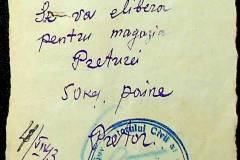 Se va elibera
pentru magazia
Preturei
50 kg. paine
Pretor.
Civil al